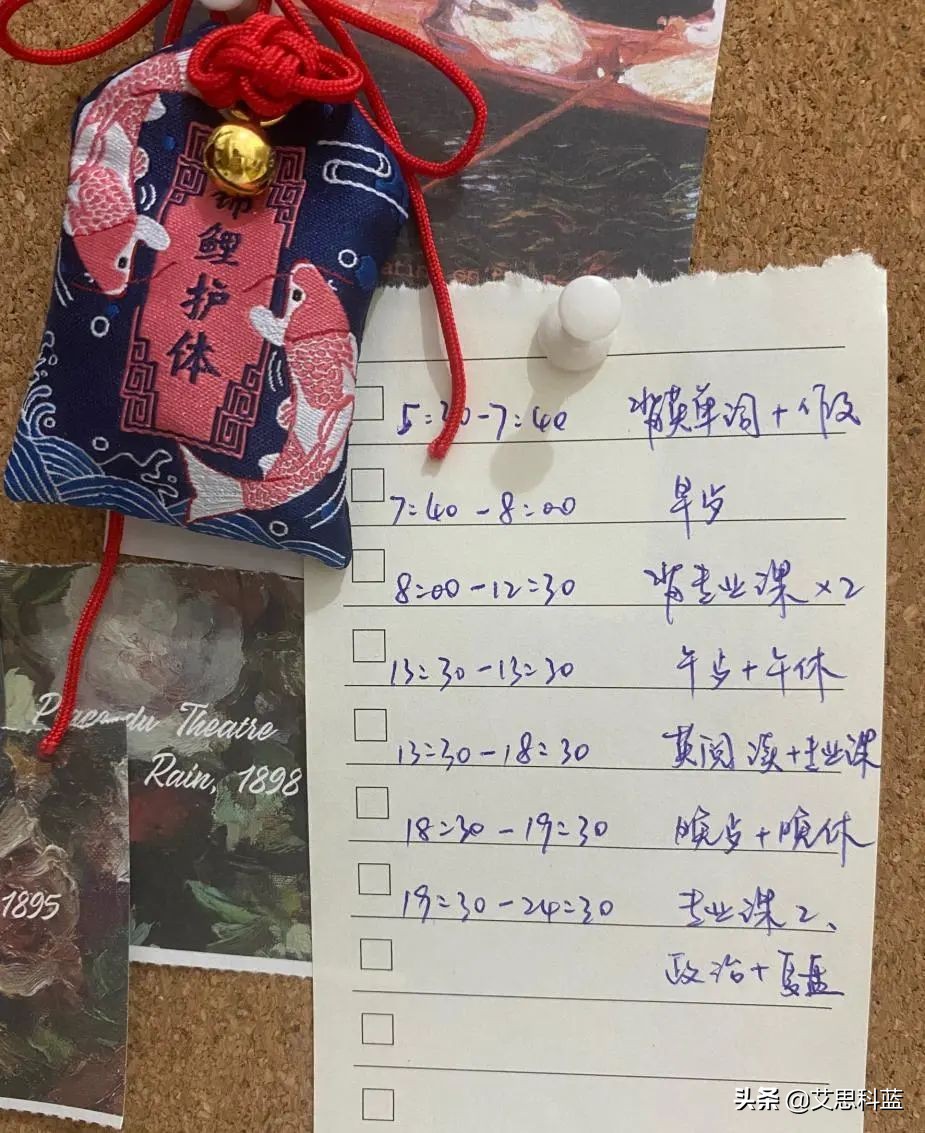 锦鲤护体
5:30-7:40 背英单词+
7:40-8:00 早歺
8:00-12:30 背专业课×2
13:30-13:30 午歺+午休
13:30-18:30 英阅读+专业课
18:30-19:30 晚歺+晚休
19:30-24:30 专业课2、
政治+复盘
Place du Theatre
Rain, 1898
1895
头条 @艾思科蓝